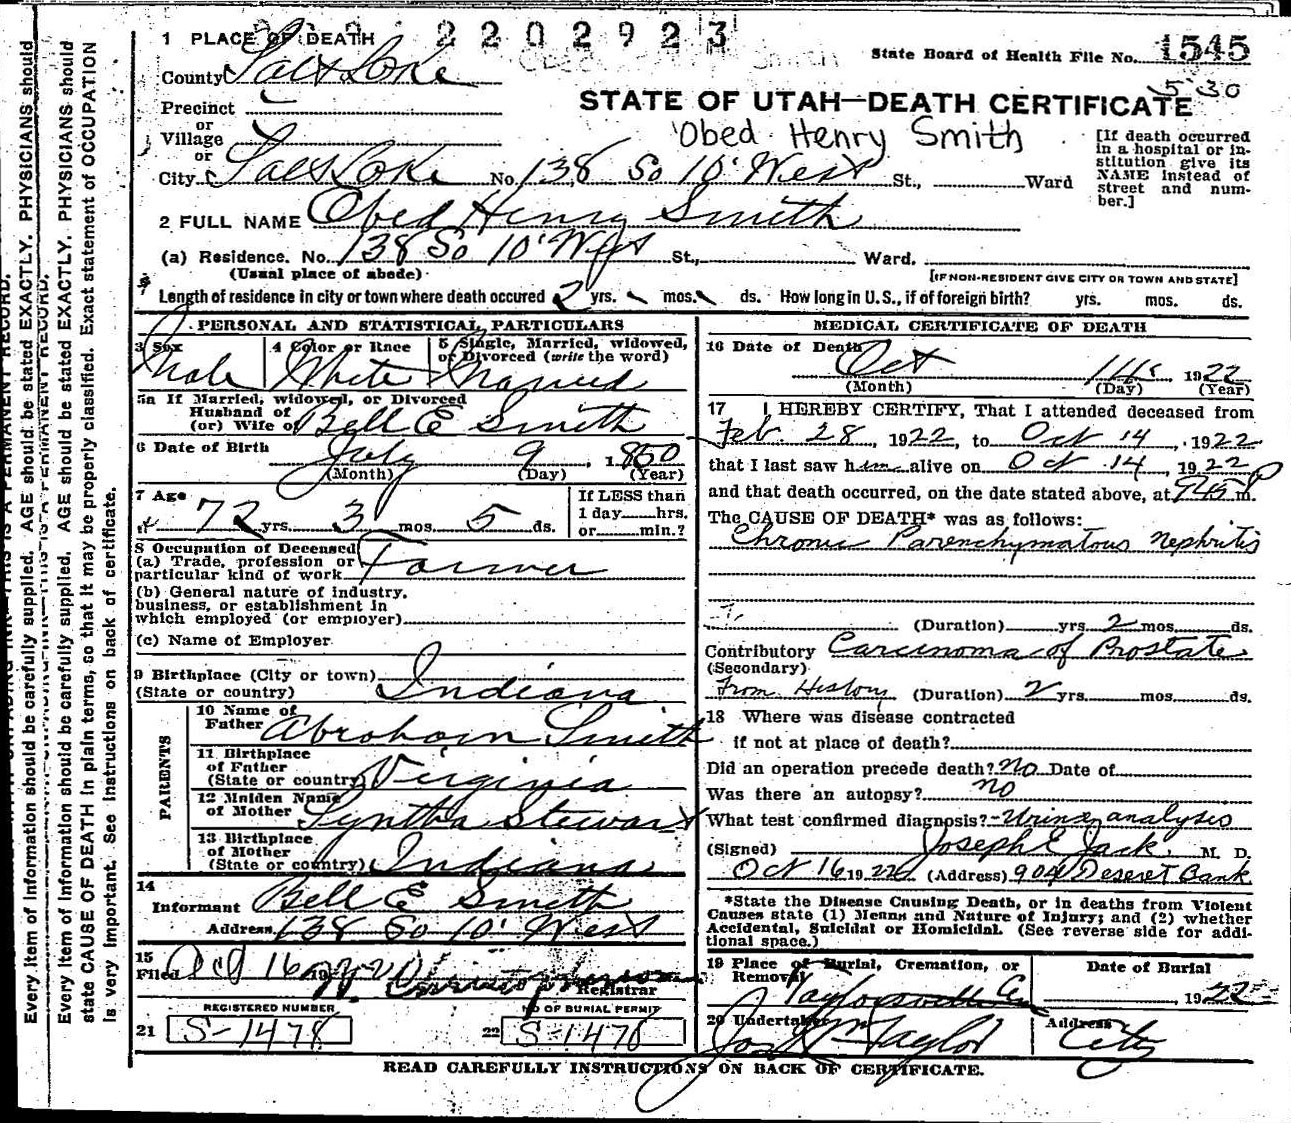 1 PLACE OF DEATH
2202923
State Board of Health File No. 1545
County Salt Lake
530
Precinct
STATE OF UTAH—DEATH CERTIFICATE
or
Village
Obed Henry Smith
[If death occurred in a hospital or institution give its NAME instead of street and number.]
or
City Salt Lake No. 138 So 10' West St., Ward
2 FULL NAME Obed Henry Smith
(a) Residence. No. 138 So 10' West St., Ward.
(Usual place of abode)
[IF NON-RESIDENT GIVE CITY OR TOWN AND STATE]
Length of residence in city or town where death occured 2 yrs. mos. ds. How long in U.S., if of foreign birth? yrs. mos. ds.
PERSONAL AND STATISTICAL PARTICULARS
3 Sex
Male
4 Color or Race
White
5 Single, Married, widowed, or Divorced (write the word)
Married
5a If Married, widowed, or Divorced
Husband of
(or) Wife of Bell E Smith
6 Date of Birth July 9, 1850
(Month) (Day) (Year)
7 Age
72 yrs. 3 mos. 5 ds.
If LESS than
1 day hrs.
or min.?
8 Occupation of Deceased
(a) Trade, profession or
particular kind of work Farmer
(b) General nature of Industry,
business, or establishment in
which employed (or employer)
(c) Name of Employer
9 Birthplace (City or town)
(State or country) Indiana
PARENTS
10 Name of
Father Abraham Smith
11 Birthplace
of Father
(State or country) Virginia
12 Maiden Name
of Mother Syntha Stewart
13 Birthplace
of Mother
(State or country) Indiana
14
Informant Bell E Smith
Address 138 So 10' West
15
Filed Oct 16
Registrar
REGISTERED NUMBER
NO OF BURIAL PERMIT
21 S-1478
22 S-1478
MEDICAL CERTIFICATE OF DEATH
16 Date of Death
Oct 14 1922
(Month) (Day) (Year)
17 I HEREBY CERTIFY, That I attended deceased from
Feb. 28, 1922, to Oct 14, 1922
that I last saw him alive on Oct. 14, 1922
and that death occurred, on the date stated above, at 9:45 P m.
The CAUSE OF DEATH* was as follows:
Chronic Parenchymatous Nephritis
(Duration) yrs. 2 mos. ds.
Contributory Carcinoma of Prostate
(Secondary)
From History (Duration) 2 yrs. mos. ds.
18 Where was disease contracted
if not at place of death?
Did an operation precede death? no Date of
Was there an autopsy? no
What test confirmed diagnosis? Urine analysis
(Signed) Joseph E Jack M. D.
Oct 16 1922 (Address) 904 Deseret Bank
*State the Disease Causing Death, or in deaths from Violent
Causes state (1) Means and Nature of Injury; and (2) whether
Accidental, Suicidal or Homicidal. (See reverse side for addi-
tional space.)
19 Place of Burial, Cremation, or
Removal
Taylorsville
Date of Burial
1922
20 Undertaker
Taylor
Address
City
READ CAREFULLY INSTRUCTIONS ON BACK OF CERTIFICATE.
Every item of information should be carefully supplied. AGE should be stated EXACTLY. PHYSICIANS should
Every item of information should be carefully supplied. AGE should be stated EXACTLY. PHYSICIANS should
state CAUSE OF DEATH in plain terms, so that it may be properly classified. Exact statement of OCCUPATION
is very important. See instructions on back of certificate.